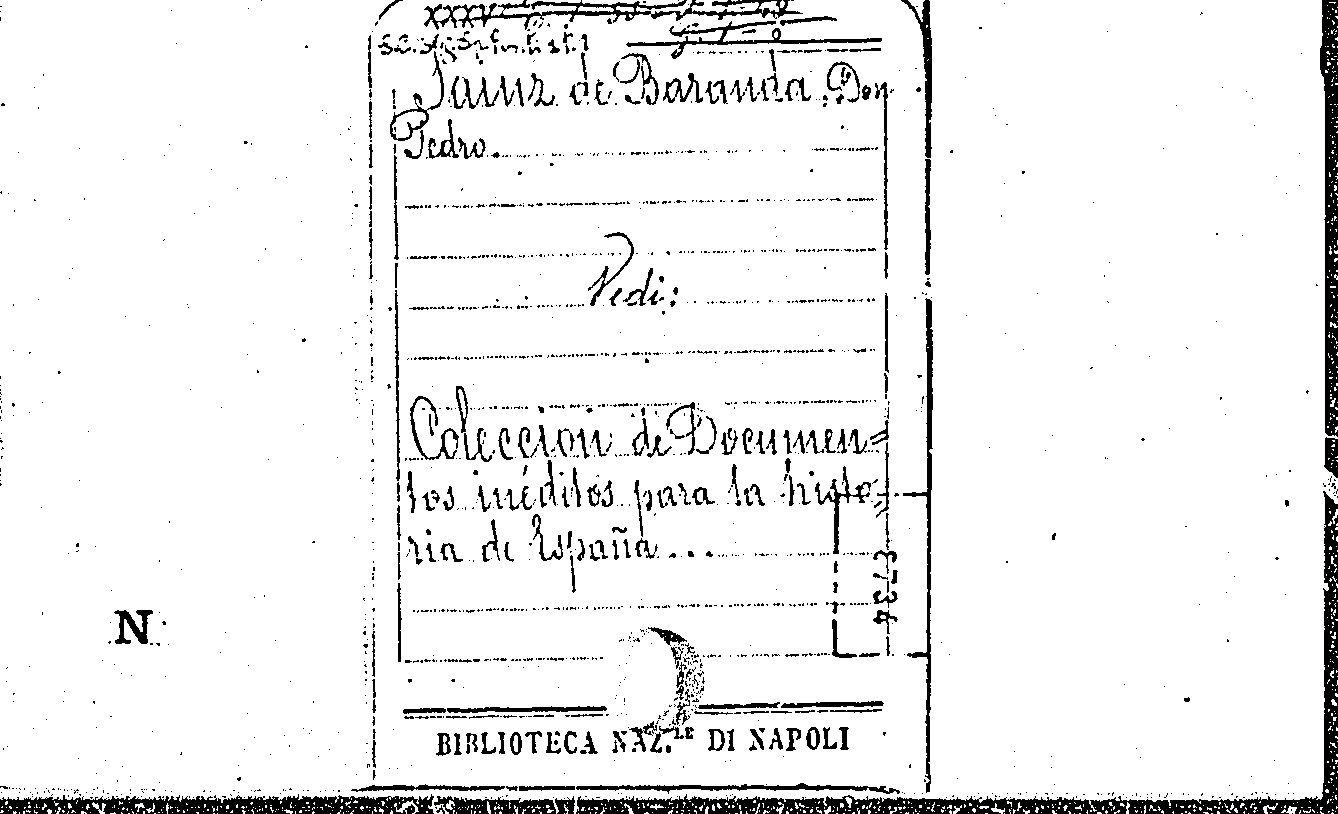 Sainz de Baranda, Don
Pedro.
Vedi:
Coleccion de Documen=
tos inéditos para la histo=
ria de España...
3734
N
BIBLIOTECA NAZ.LE DI NAPOLI